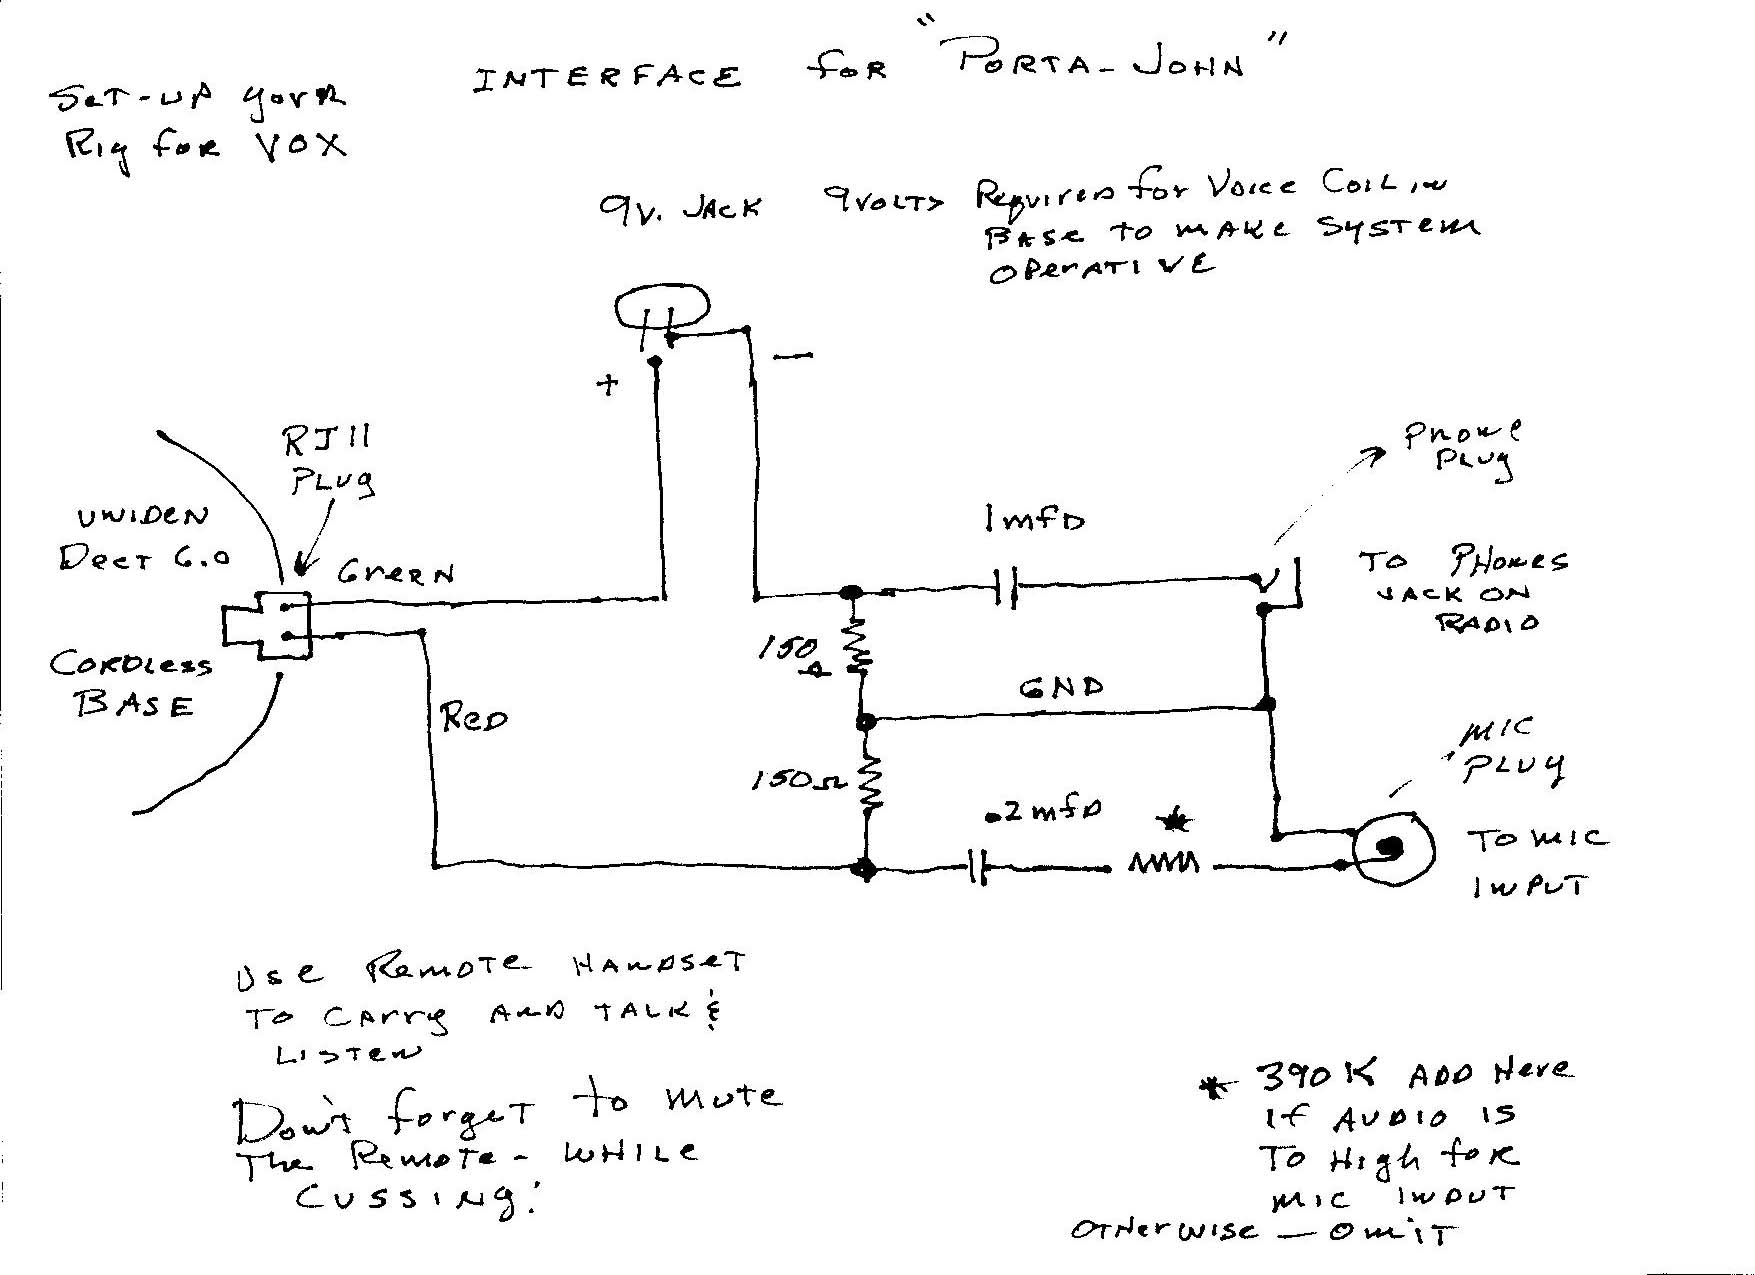 INTERFACE for "PORTA-JOHN"
SET-UP your
Rig for VOX
9V. JACK 9VOLTS Required for Voice COIL in
BASE TO MAKE SYSTEM
OPERATIVE
+
—
RJ11
PLUG
UNIDEN
Dect 6.0
GREEN
CORDLESS
BASE
RED
1mfD
Phone
PLUG
TO PHONES
JACK ON
RADIO
150
Ω
GND
150Ω
.2mfD
*
MIC
PLUG
TO MIC
INPUT
USE REMOTE HANDSET
TO CARRY AND TALK &
LISTEN
Don't forget to mute
The Remote - WHILE
CUSSING!
* 390K ADD Here
If AUDIO IS
TO High for
MIC INPUT
OTHERWISE — OMIT